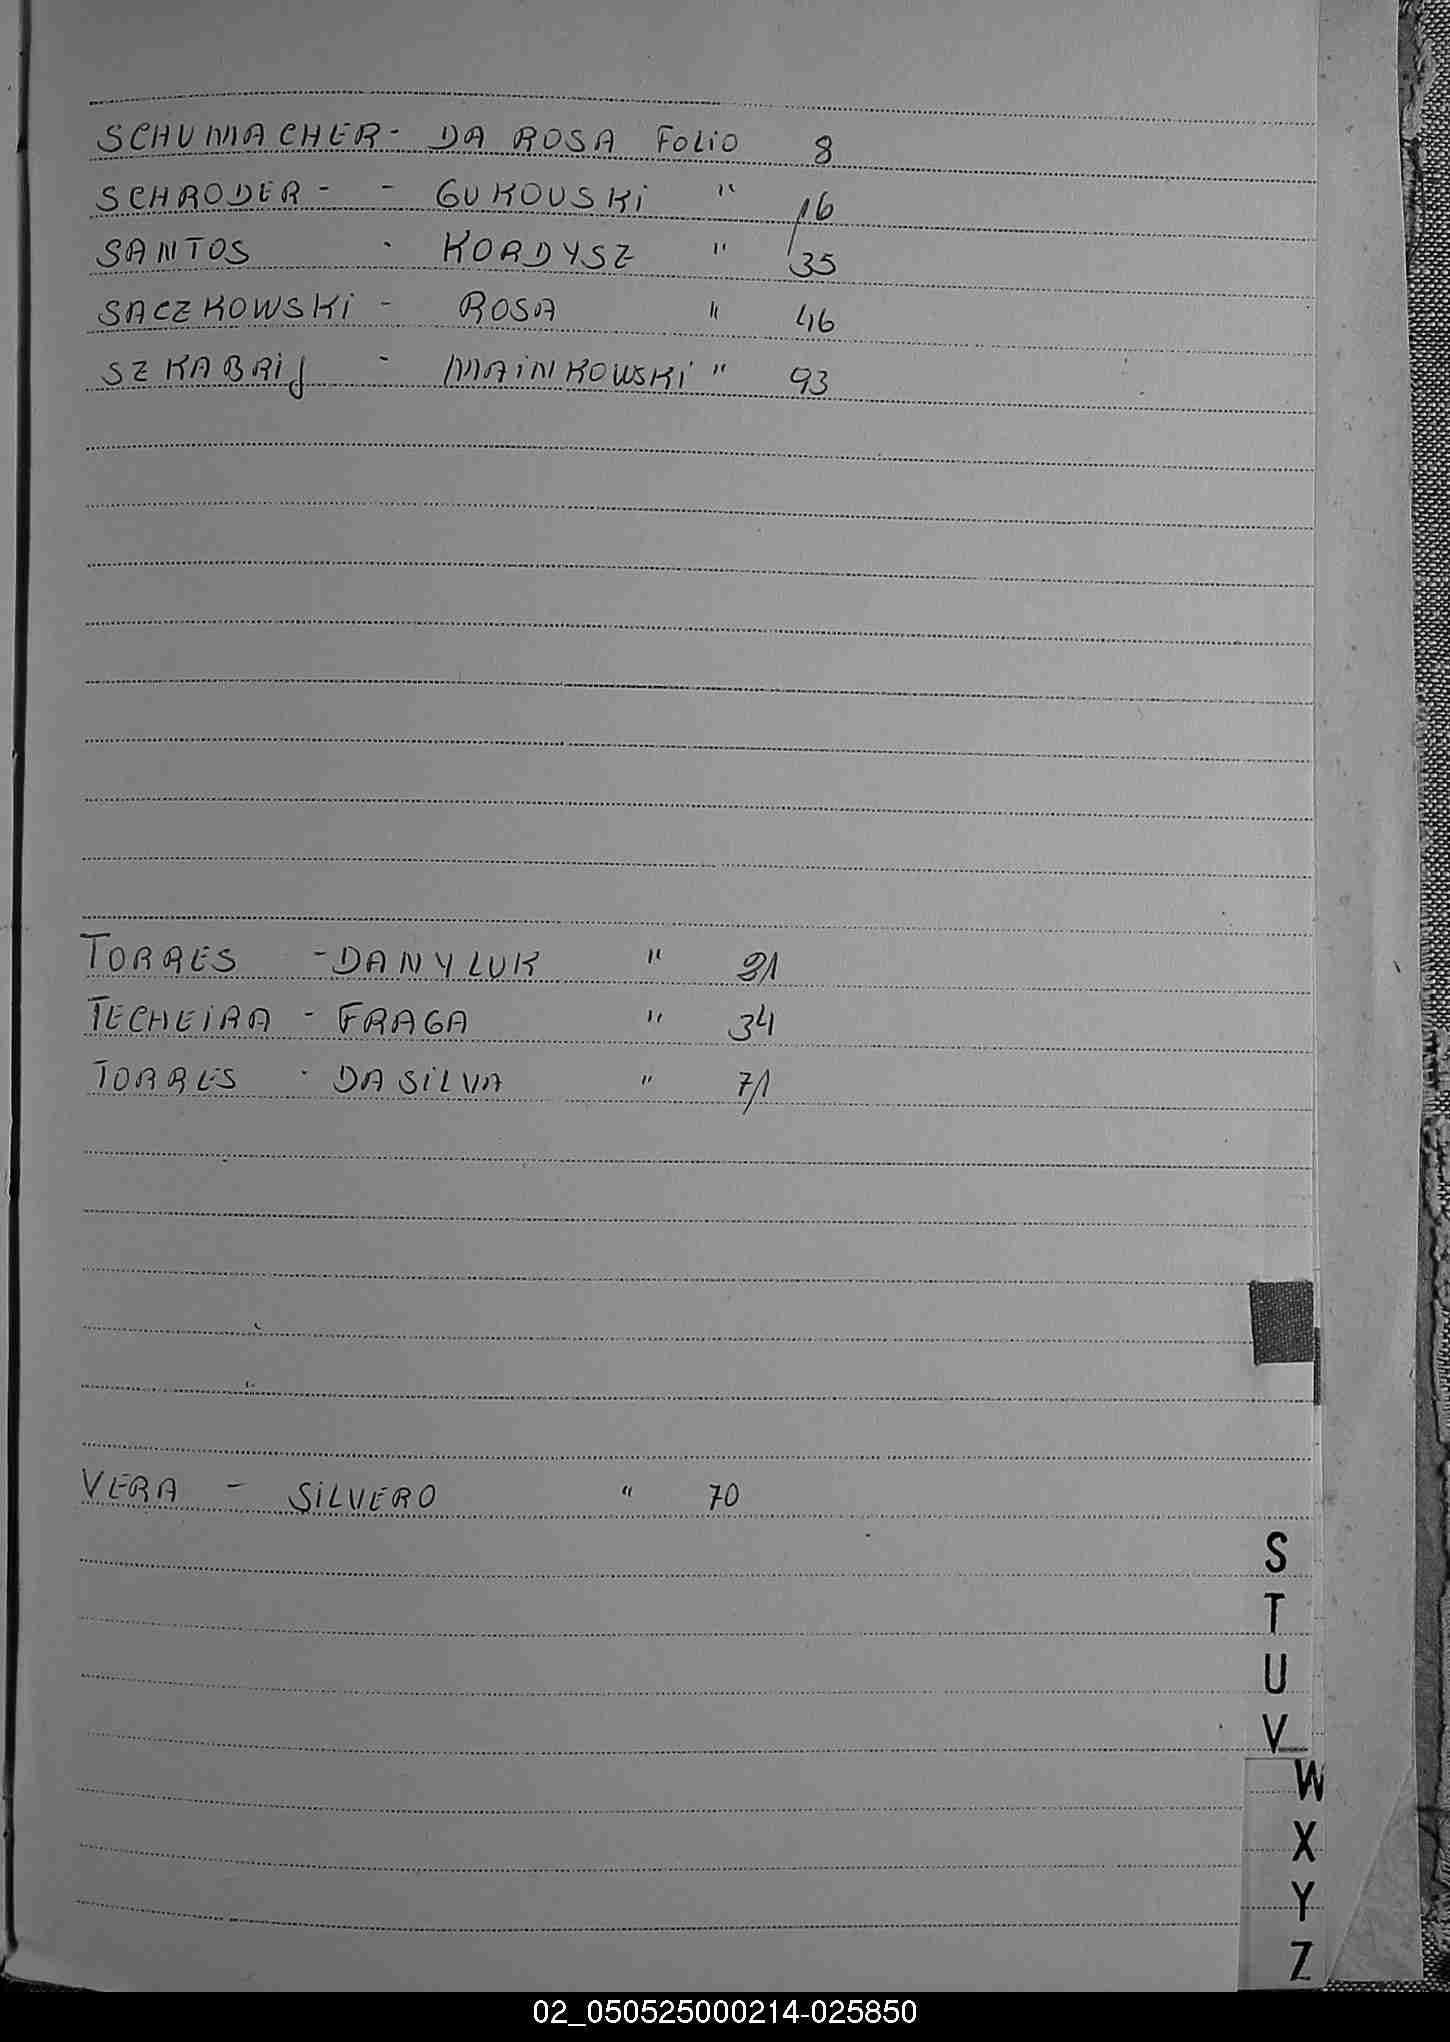 SCHUMACHER - DA ROSA FOLIO 8
SCHRODER - - GUKOUSKI " 16
SANTOS - KORDYSZ " 35
SACZKOWSKI - ROSA " 46
SZKABRIJ - MAINKOWSKI " 93
TORRES - DANYLUK "
TECHEIRA - FRAGA " 34
TORRES - DA SILVA " 71
VERA - SILVERO " 70
S
T
U
V
W
X
Y
Z
02_050525000214-025850